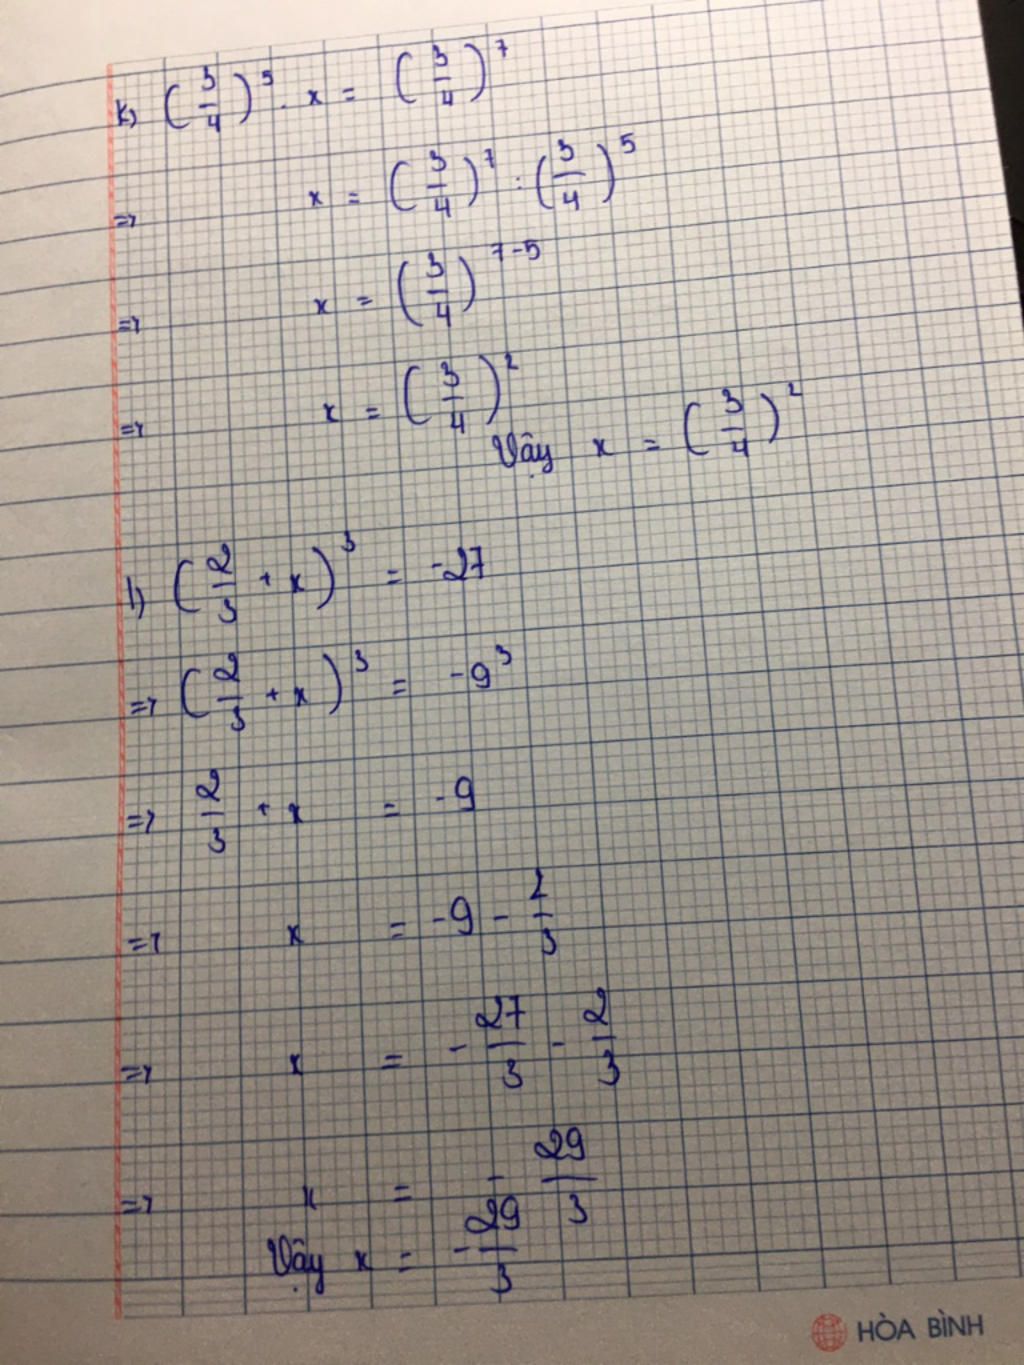 k) (3/4)^5 . x = (3/4)^7
=> x = (3/4)^7 : (3/4)^5
=> x = (3/4)^(7-5)
=> x = (3/4)^2
Vậy x = (3/4)^2
l) (2/3 + x)^3 = -27
=> (2/3 + x)^3 = -9^3
=> 2/3 + x = -9
=> x = -9 - 2/3
=> x = -27/3 - 2/3
=> x = -29/3
Vậy x = -29/3
HÒA BÌNH